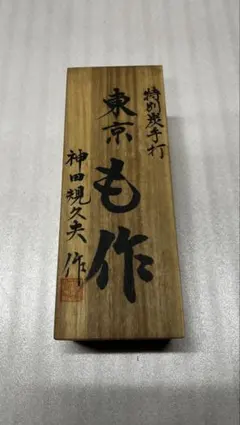 特別炭手打
東京
も作
神田規久夫作